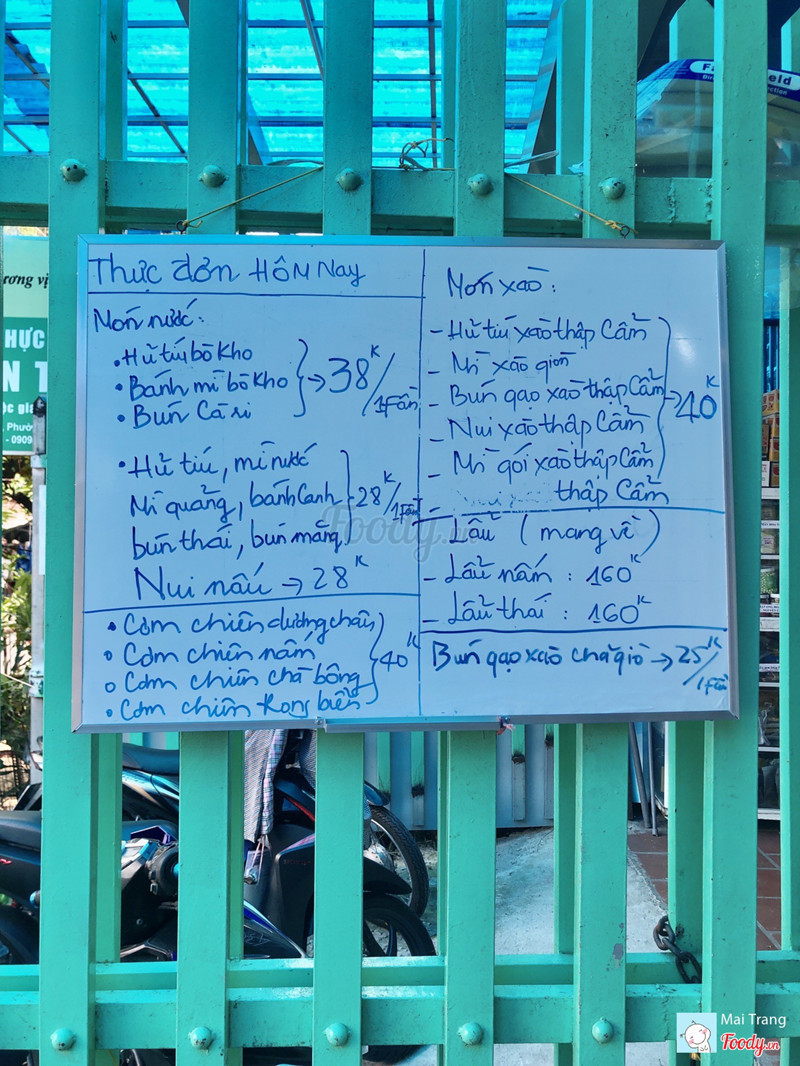 Thực đơn HÔM Nay
Món nước:
• Hủ tiú bò kho
• Bánh mì bò kho
• Bún Cà ri
→ 38K/1phần
• Hủ tiú, mì nước
Mì quảng, bánh Canh
bún thái, bún măng
28K/1phần
Nui nấu → 28K
• Cơm chiên dương châu
• Cơm chiên nấm
• Cơm chiên chà bông
• Cơm chiên Rong biển
40K
Món xào:
- Hủ tiú xào thập Cẩm
- Mì xào giòn
- Bún gạo xào thập Cẩm
- Nui xào thập Cẩm
- Mì gói xào thập Cẩm
- thập Cẩm
→ 40K
Lẩu (mang về)
- Lẩu nấm : 160K
- Lẩu thái : 160K
Bún gạo xào chả giò → 25K/1phần
Foody.vn
Mai Trang
Foody.vn